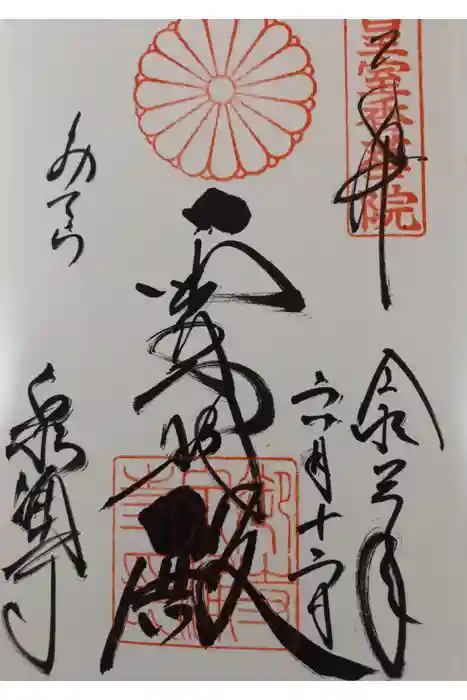 皇室香華院
奉拝
令和
六月十六日
霊明殿
みてら
泉涌寺